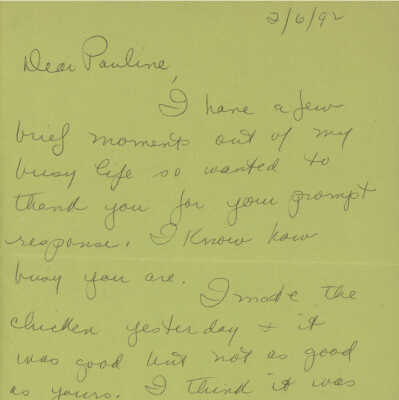 2/6/92
Dear Pauline,
I have a few
brief moments out of my
busy life so wanted to
thank you for your prompt
response. I know how
busy you are.
I made the
chicken yesterday + it
was good but not as good
as yours. I think it was